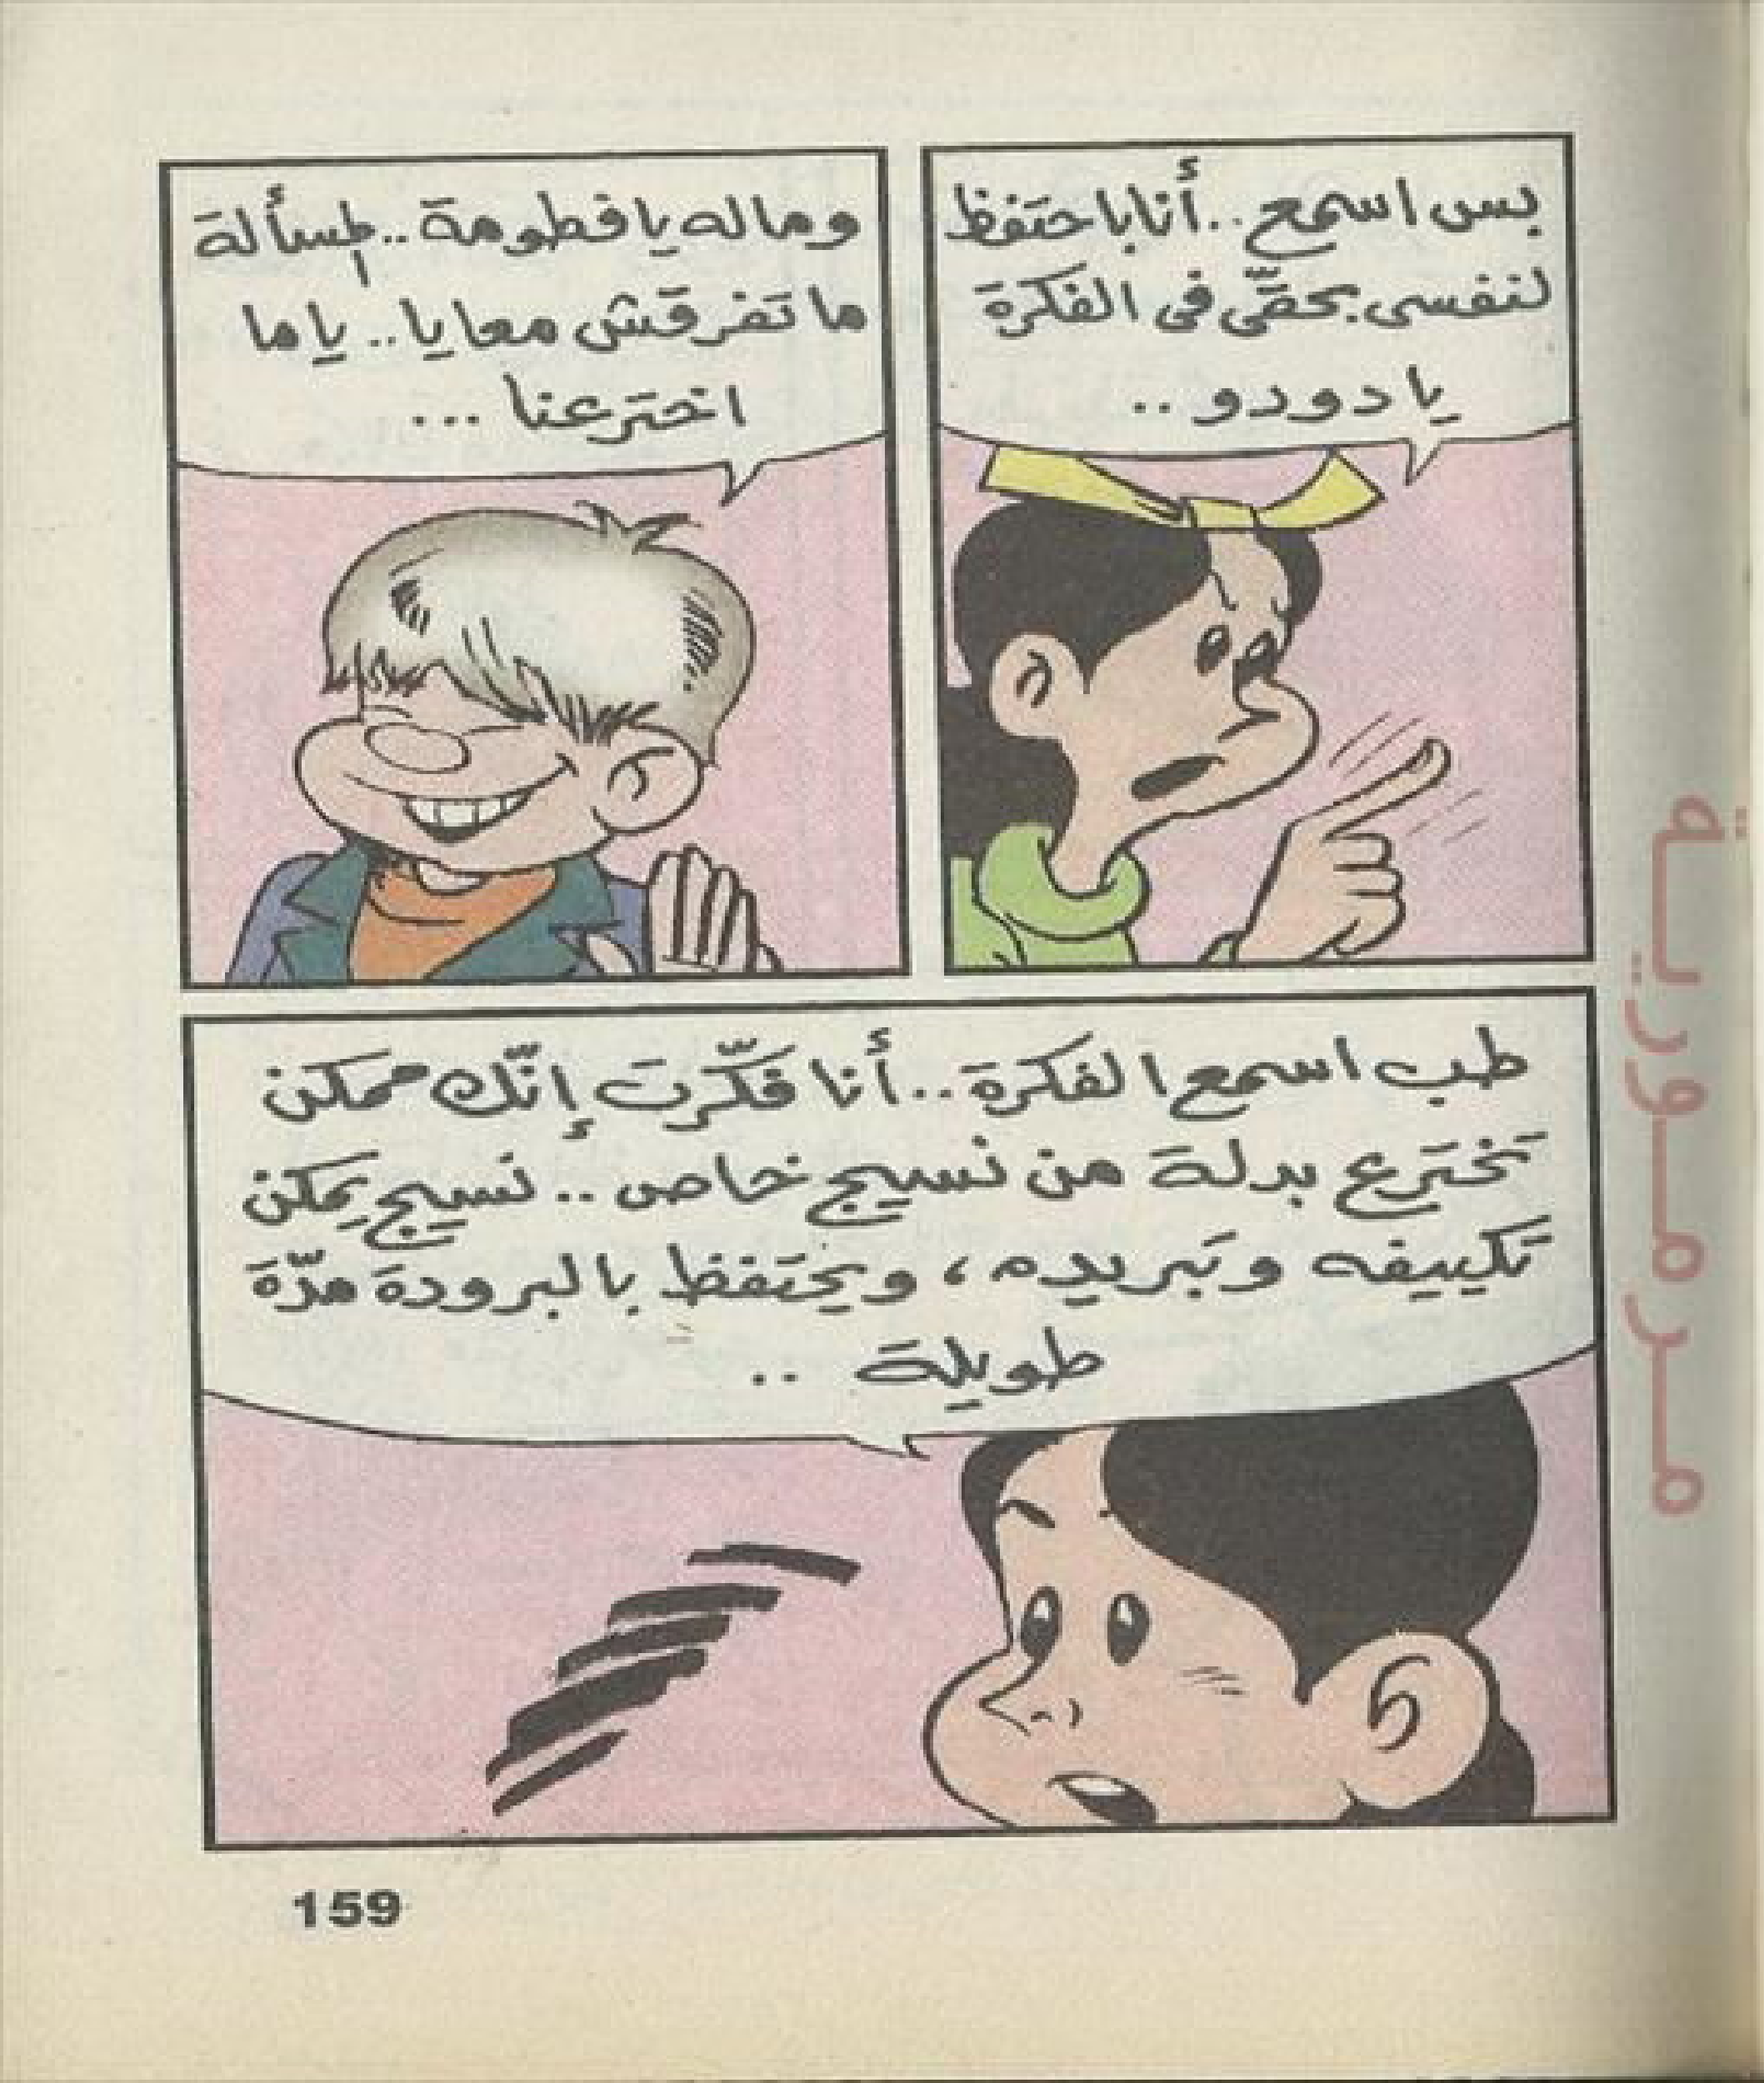 بس اسمع.. أنا باحتفظ
لنفسى بحقّى فى الفكرة
يا دودو..
وماله يا فطومة.. المسألة
ما تفرقش معايا.. ياما
اخترعنا ...
طب اسمع الفكرة.. أنا فكّرت إنّك ممكن
تخترع بدلة من نسيج خاص.. نسيج يمكن
تكييفه وتبريده، ويحتفظ بالبرودة مدّة
طويلة ..
مرمورية
159